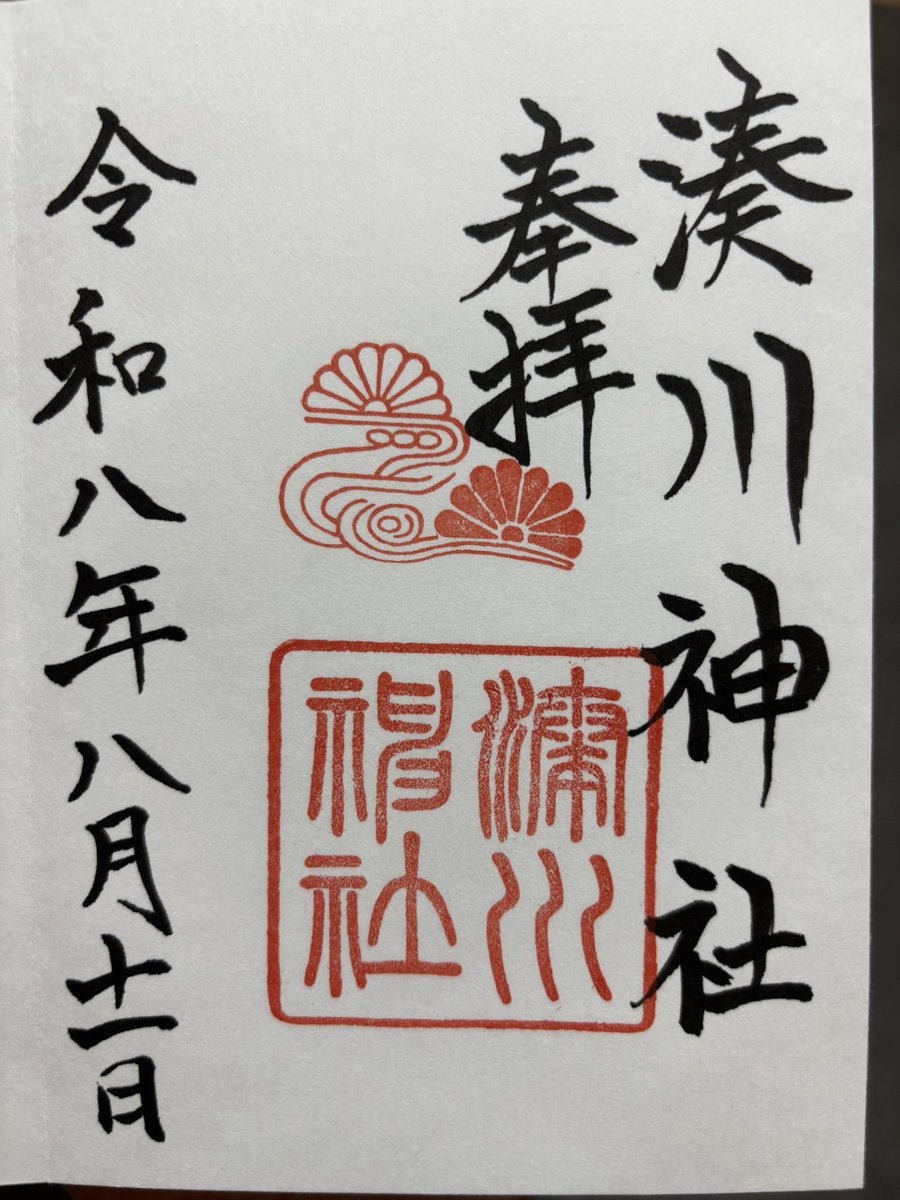 湊川神社
奉拝
湊川
神社
令和八年八月十一日